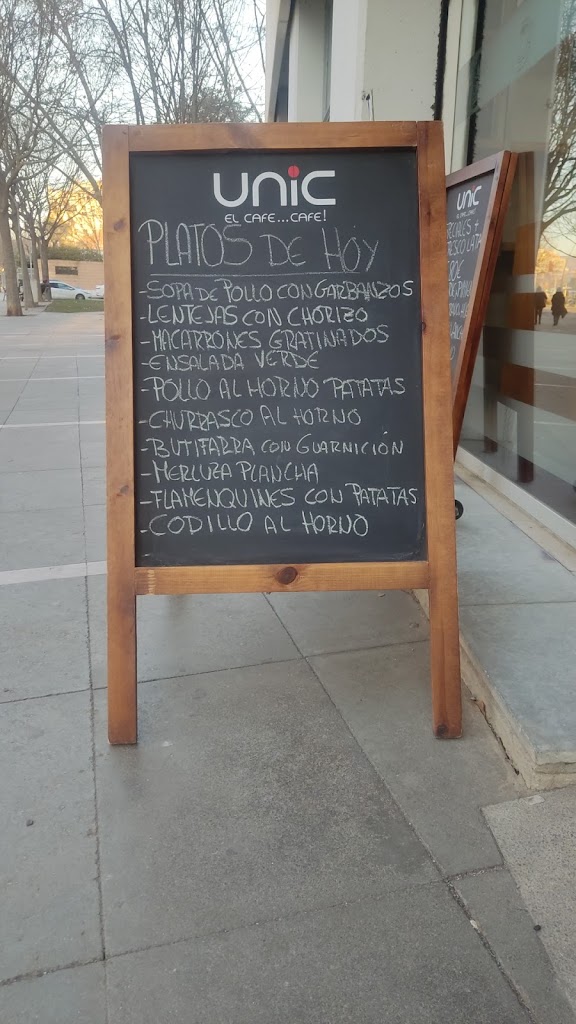 UNIC
EL CAFE...CAFE!
PLATOS DE HOY
-SOPA DE POLLO CON GARBANZOS
-LENTEJAS CON CHORIZO
-MACARRONES GRATINADOS
-ENSALADA VERDE
-POLLO AL HORNO PATATAS
-CHURRASCO AL HORNO
-BUTIFARRA CON GUARNICIÓN
-MERLUZA PLANCHA
-FLAMENQUINES CON PATATAS
-CODILLO AL HORNO
-
UNIC